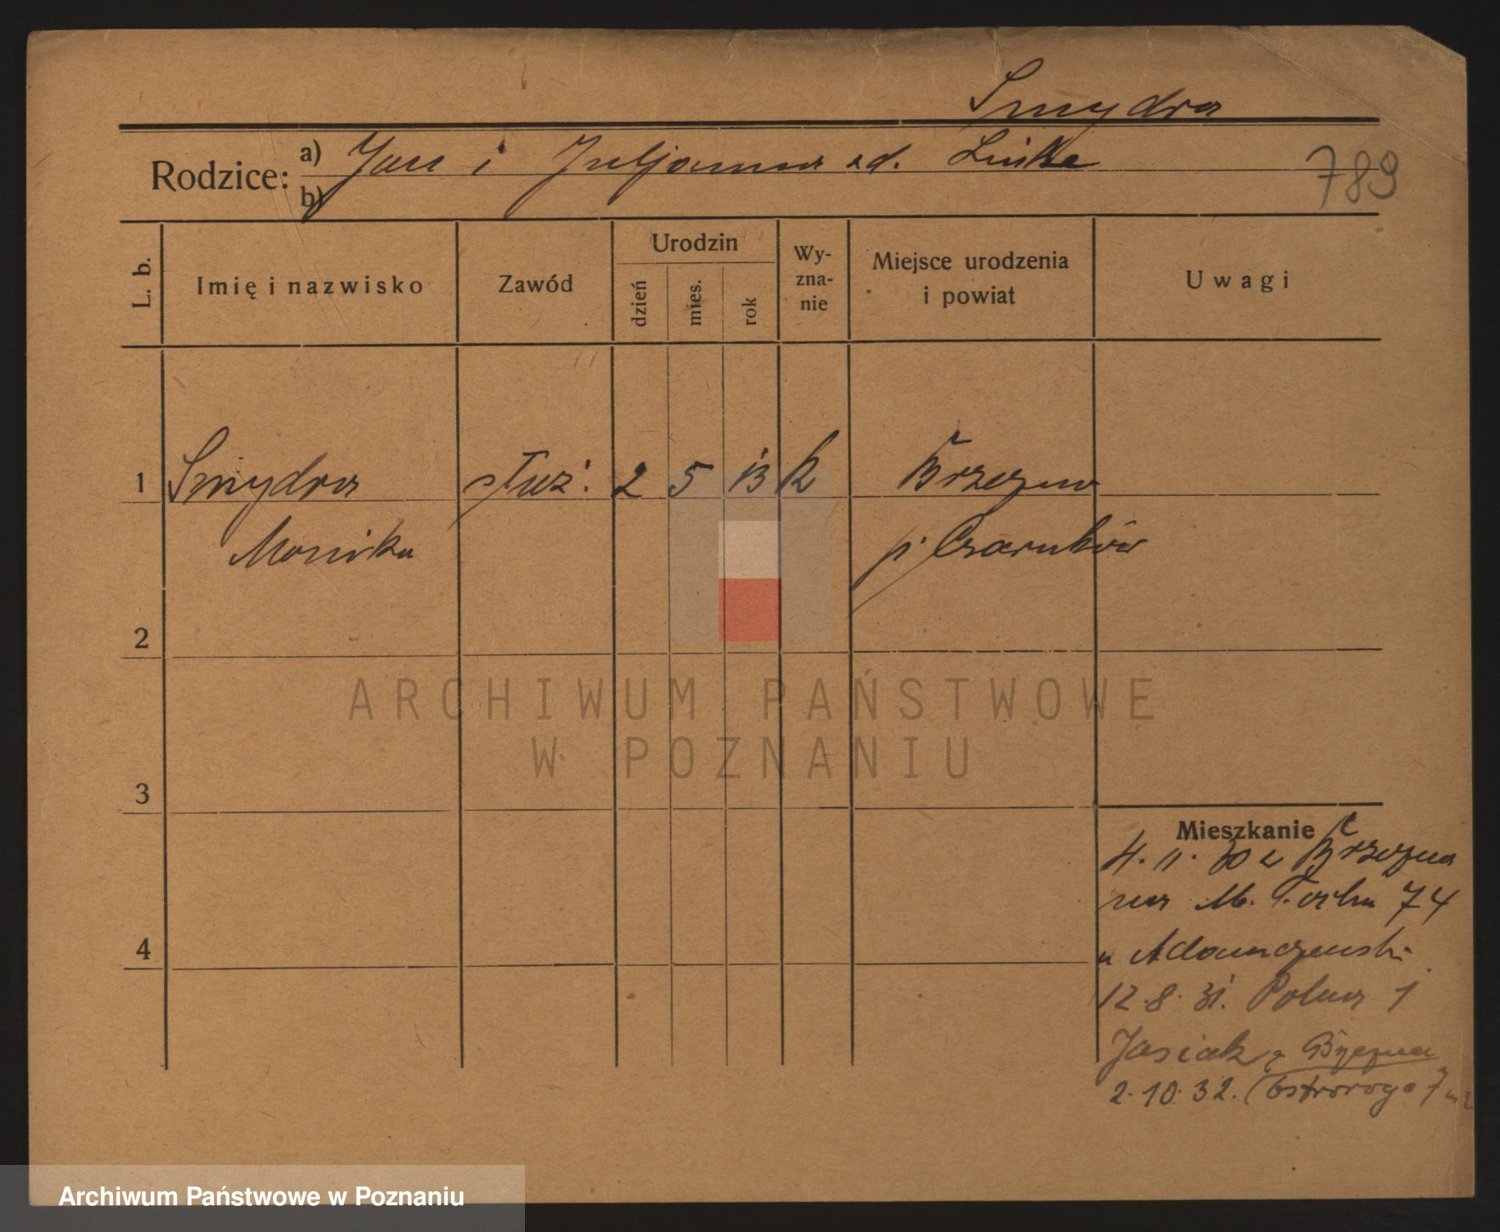 Smydra
Rodzice: a) Jan i Juljanna zd. Linke
b)
789
L. b.
Imię i nazwisko
Zawód
Urodzin
dzień
mies.
rok
Wy-
zna-
nie
Miejsce urodzenia
i powiat
Uwagi
1 Smydra służ. 2 5 13 k Brzezno
Monika p. Czarnków
2
3
4
Mieszkanie
4. 11. 30 z Brzezna
na M. Focha 74
u Adamczewski
12.8.31. Polna 1
Jasiak z
2.10.32. Ostroroga 7
ARCHIWUM PAŃSTWOWE
W POZNANIU
Archiwum Państwowe w Poznaniu